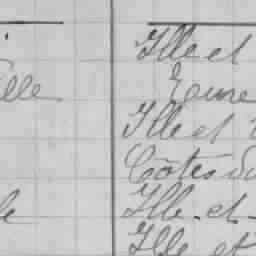 Ille et
lle Eure
Ille et
Côtes du
le Ille-et-
Ille et